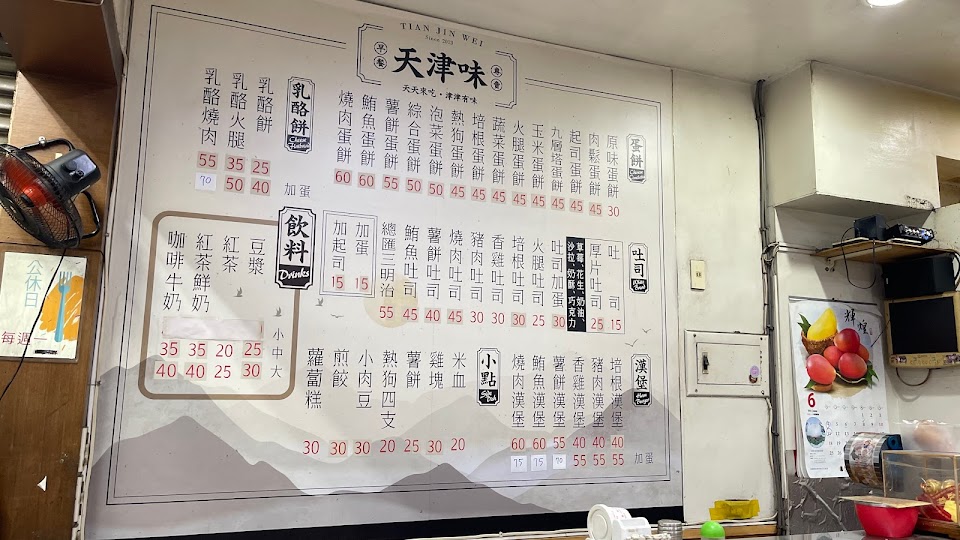 TIAN JIN WEI
Since 2013
早餐
天津味
專賣
天天來吃・津津有味
蛋餅
原味蛋餅 30
肉鬆蛋餅 45
起司蛋餅 45
九層塔蛋餅 45
玉米蛋餅 45
火腿蛋餅 45
蔬菜蛋餅 45
培根蛋餅 45
熱狗蛋餅 45
泡菜蛋餅 50
綜合蛋餅 50
薯餅蛋餅 55
鮪魚蛋餅 60
燒肉蛋餅 60
乳酪餅
乳酪餅 25 40
乳酪火腿 35 50
乳酪燒肉 55 70
加蛋
吐司
吐司 15
厚片吐司 25
草莓、花生、奶油、
沙拉、奶酥、巧克力
吐司加蛋 30
火腿吐司 25
培根吐司 30
香雞吐司 30
豬肉吐司 30
燒肉吐司 45
薯餅吐司 40
鮪魚吐司 45
總匯三明治 55
加蛋 15
加起司 15
飲料
Drinks
豆漿 25 30
紅茶 20 25
紅茶鮮奶 35 40
咖啡牛奶 35 40
小中大
漢堡
培根漢堡 40 55
豬肉漢堡 40 55
香雞漢堡 40 55
薯餅漢堡 55 70
鮪魚漢堡 60 75
燒肉漢堡 60 75
加蛋
小點
米血 20
雞塊 30
薯餅 25
熱狗四支 20
小肉豆 30
煎餃 30
蘿蔔糕 30
公休日
每週一
輝煌
6